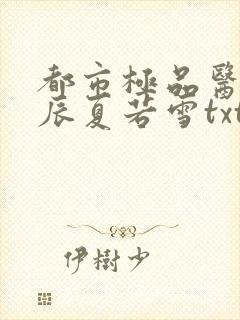 都市極品醫
辰夏若雪txt
伊樹少